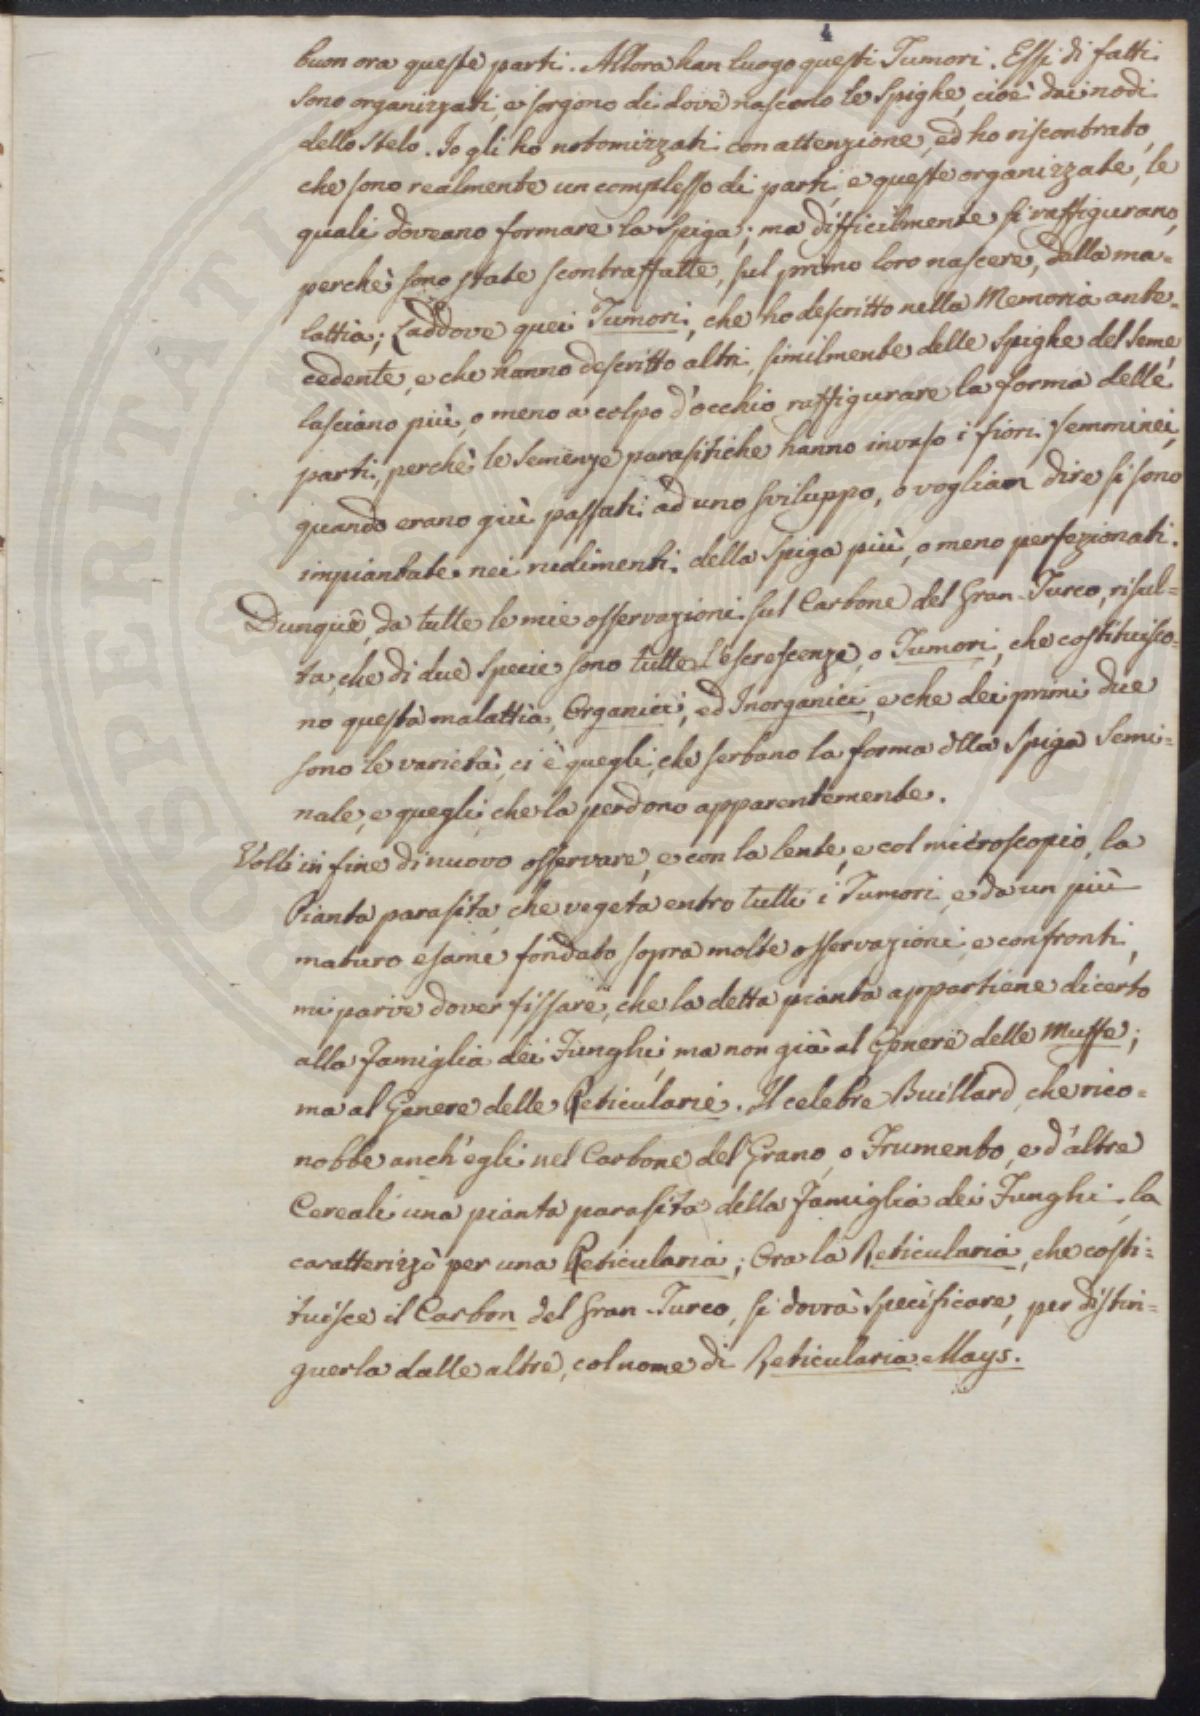 4
buon ora queste parti. Allora han luogo questi Tumori. Essi di fatti
sono organizzati, e sorgono di dove nascono le Spighe, cioè dai nodi
dello stelo. Io gli ho notomizzati con attenzione, ed ho riscontrato,
che sono realmente un complesso di parti, e queste organizzate, le
quali doveano formare la Spiga; ma difficilmente si raffigurano,
perchè sono state scontraffatte, sul primo loro nascere, dalla ma=
lattia; Laddove quei Tumori, che ho descritto nella Memoria ante=
cedente, e che hanno descritto altri, similmente delle Spighe del Seme
lasciano più, o meno a colpo d'occhio raffigurare la forma delle
parti, perchè le Semenze parasitiche hanno invaso i fiori femminei,
quando erano già passati ad uno sviluppo, o vogliam dire si sono
impiantate nei rudimenti della Spiga più, o meno perfezionati.
Dunque, da tutte le mie osservazioni sul Carbone del Gran-Turco, risul=
ta, che di due Specie sono tutte l'escrescenze, o Tumori, che costituisco=
no questa malattia, Organici, ed Inorganici, e che dei primi due
sono le varietà, ci è quegli, che serbano la forma dlla Spiga Semi=
nale, e quegli, che la perdono apparentemente.
Volli in fine di nuovo osservare, e con la lente, e col microscopio, la
Pianta parasita, che vegeta entro tutti i Tumori, e da un più
maturo esame, fondato sopra molte osservazioni, e confronti,
mi parve dover fissare, che la detta pianta appartiene di certo
alla famiglia dei Funghi, ma non già al Genere delle Muffe;
ma al Genere delle Reticularie. Il celebre Buillard, che rico=
nobbe anch'egli nel Carbone del Grano, o Frumento, e d'altre
Cereali una pianta parasita della famiglia dei Funghi, la
caratterizzò per una Reticularia; Ora la Reticularia, che costi=
tuisce il Carbon del Gran-Turco, si dovrà specificare, per distin=
guerla dalle altre, col nome di Reticularia Mays.
SPERITATI